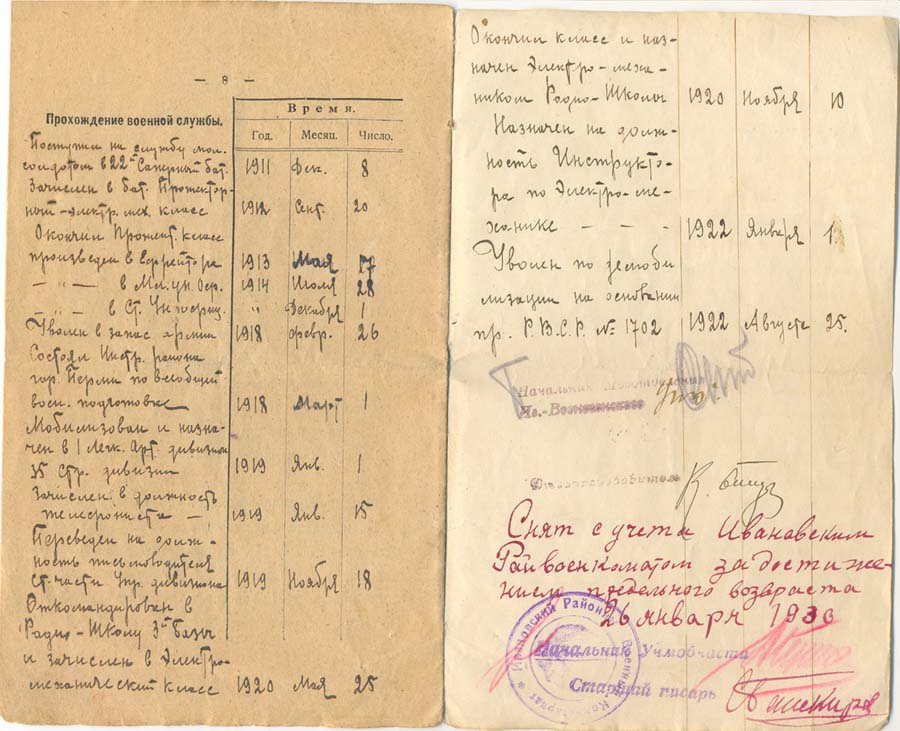 — 8 —
Прохождение военной службы.
Время.
Год. Месяц. Число.
Поступил на службу мол.
солдатом в 22й Саперный бат. 1911 Фев. 8
Зачислен в бат. Прожектор-
ный-электр. мех. класс 1912 Сент. 20
Окончил Прожект. класс
произведен в Ефрейтора 1913 Мая 17
—"— в Мл. ун. Оф. 1914 Июля 28
—"— в Ст. Ун. офиц. " Декабря 1
Уволен в запас армии 1918 февр. 26
Состоял Инстр. района
гор. Перми по всеобщей
воен. подготовке 1918 Март 1
Мобилизован и назна-
чен в 1 Легк. Арт. дивизион
35 Стр. дивизии 1919 Янв. 1
Зачислен в должность
телефониста — 1919 Янв. 15
Переведен на долж-
ность письмоводителя
Ст. части Упр. дивизиона 1919 Ноября 18
Откомандирован в
Радио-Школу 3й базы
и зачислен в Электро-
механический класс 1920 Мая 25
Окончил класс и наз-
начен Электро-меха-
ником Радио-Школы 1920 Ноября 10
Назначен на долж-
ность Инструкто-
ра по Электро-ме-
ханике — — — 1922 Января 1.
Уволен по демоби
лизации на основании
пр. Р.В.С.Р. № 1702 1922 Августа 25.
Начальник
Ив.-Вознесенского
Делопроизводитель
Снят с учета Ивановским
Райвоенкоматом за достиже-
нием предельного возраста
26 января 1930
Начальник Учмобчасти
Старший писарь
Ивановский Районный Военный Комиссариат